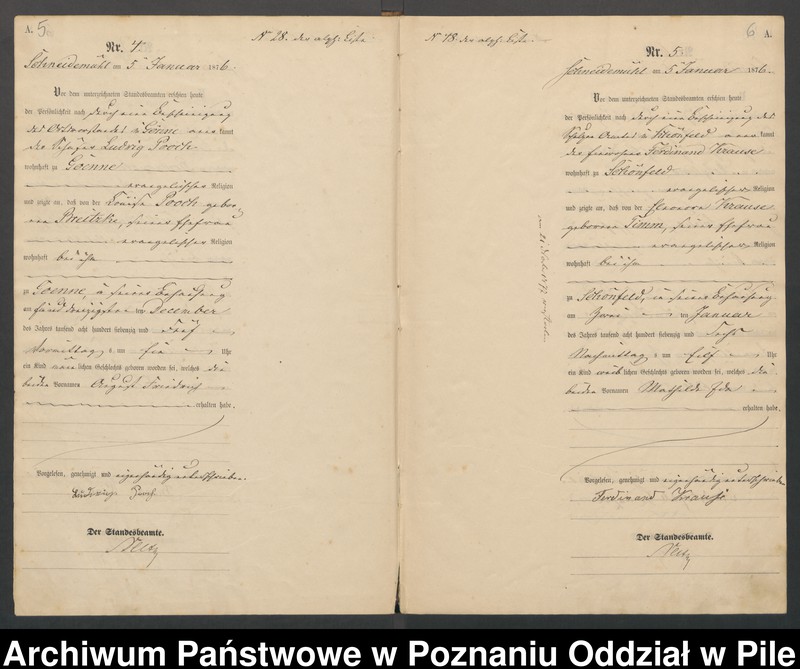 A. 5
N 28. des alph: Liste
Nr. 4.
Schneidemühl am 5 Januar 1876.
Vor dem unterzeichneten Standesbeamten erschien heute
der Persönlichkeit nach durch eine Bescheinigung
des Ortsvorstandes zu Goenne aner kannt
der Schäfer Ludwig Pooch
wohnhaft zu Goenne
evangelischer Religion
und zeigte an, daß von der Louise Pooch gebor
nen seiner Ehefrau
evangelischer Religion
wohnhaft bei ihm
zu Goenne, in seiner Behausung
am fünf December
des Jahres tausend acht hundert siebenzig und fünf
Vormittag s um Uhr
ein Kind männ lichen Geschlechts geboren worden sei, welches die
beiden Vornamen August Friedrich
erhalten habe.
Vorgelesen, genehmigt und eigenhändig unterschrieben.
Ludwig Pooch
Der Standesbeamte.
6 A.
N 18. des alph: Liste
Nr. 5
Schneidemühl am 5 Januar 1876.
Vor dem unterzeichneten Standesbeamten erschien heute
der Persönlichkeit nach durch eine Bescheinigung des
Schulzen Amtes zu Schönfeld aner kannt
der Ferdinand Krause
wohnhaft zu Schönfeld
evangelischer Religion
und zeigte an, daß von der Eleonore Krause
geborenen Timm, seiner Ehefrau
evangelischer Religion
wohnhaft bei ihm
zu Schönfeld, in seiner Behausung
am Zwei ten Januar
des Jahres tausend acht hundert siebenzig und sechs
Nachmittag s um Uhr
ein Kind weib lichen Geschlechts geboren worden sei, welches die
beiden Vornamen Mathilde Ida
erhalten habe.
Vorgelesen, genehmigt und eigenhändig unterschrieben
Ferdinand Krause
Der Standesbeamte.
Archiwum Państwowe w Poznaniu Oddział w Pile